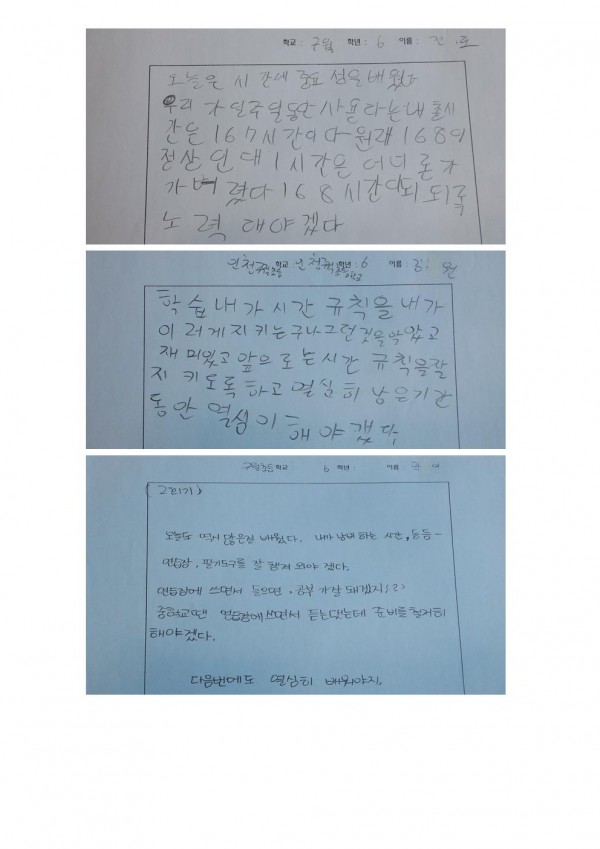 학교 : 구월 학년 : 6 이름 :
오늘은 시간에 중요성을 배웠다
우리가 일주일동안 사용하는 내 출시
간은 167시간이다 원래 168이
정상인대 1시간은 어디론가
가버렸다 168시간이 되도록
노력해야겠다
인천구월초등 학교 인천구월초등학교 학년 : 6 이름 : 김 원
학습내가 시간 규칙을 내가
이러게 지키는구나 그런것을 알았고
재미있고 앞으로는 시간 규칙을 잘
지키도록 하고 열실히 남은기간
동안 열심이 해야겠다
구월초등 학교 6 학년 이름 :
(2회기)
오늘도 역시 많은걸 배웠다. 내가 낭비 하는 시간, 등등~
연습장, 필기도구를 잘 챙겨 와야 겠다.
연습장에 쓰면서 들으면, 공부가 잘 돼겠지!(?)
중학교땐 연습장에 쓰면서 듣는댔는데 준비를 철저히
해야겠다.
다음번에도 열심히 배워야지.